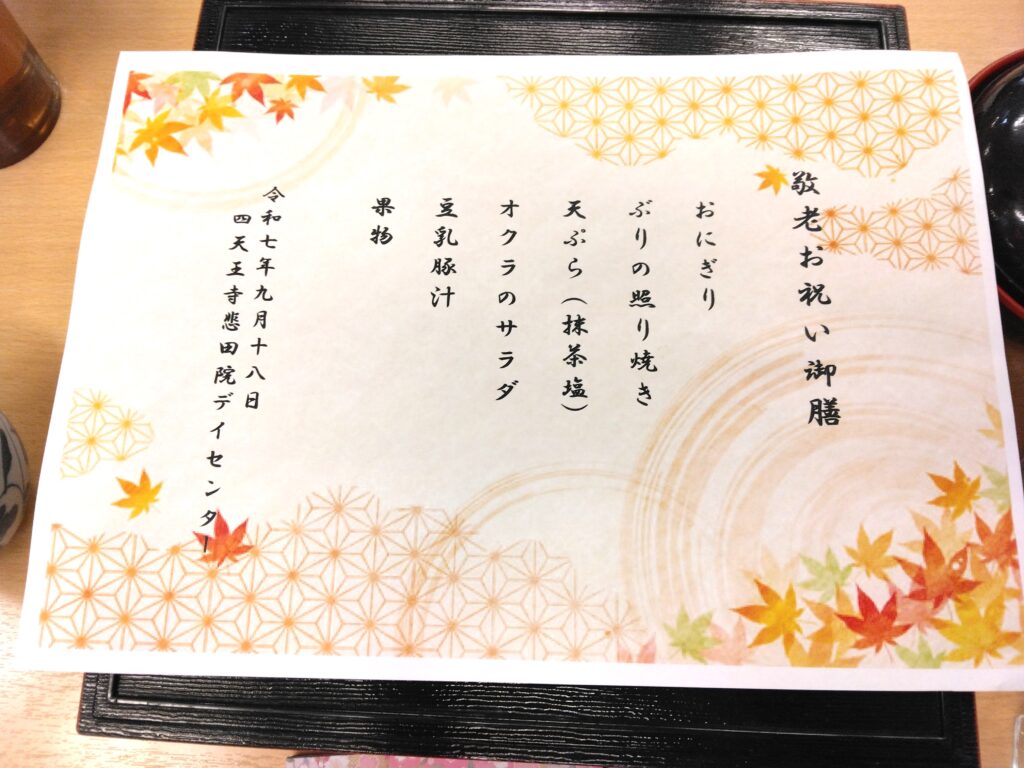 敬老お祝い御膳
おにぎり
ぶりの照り焼き
天ぷら（抹茶塩）
オクラのサラダ
豆乳豚汁
果物
令和七年九月十八日
四天王寺悲田院デイセンター